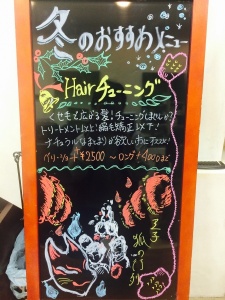 冬のおすすめメニュー
Hairチューニング
くせもで広がる髪!チューニングしませんか?
トリートメント以上!縮毛矯正以下!
ナチュラルなまとまりが欲しい方にオススメ!
ベリーショート¥2500 〜 ロング+400まで
王子
狐の行列